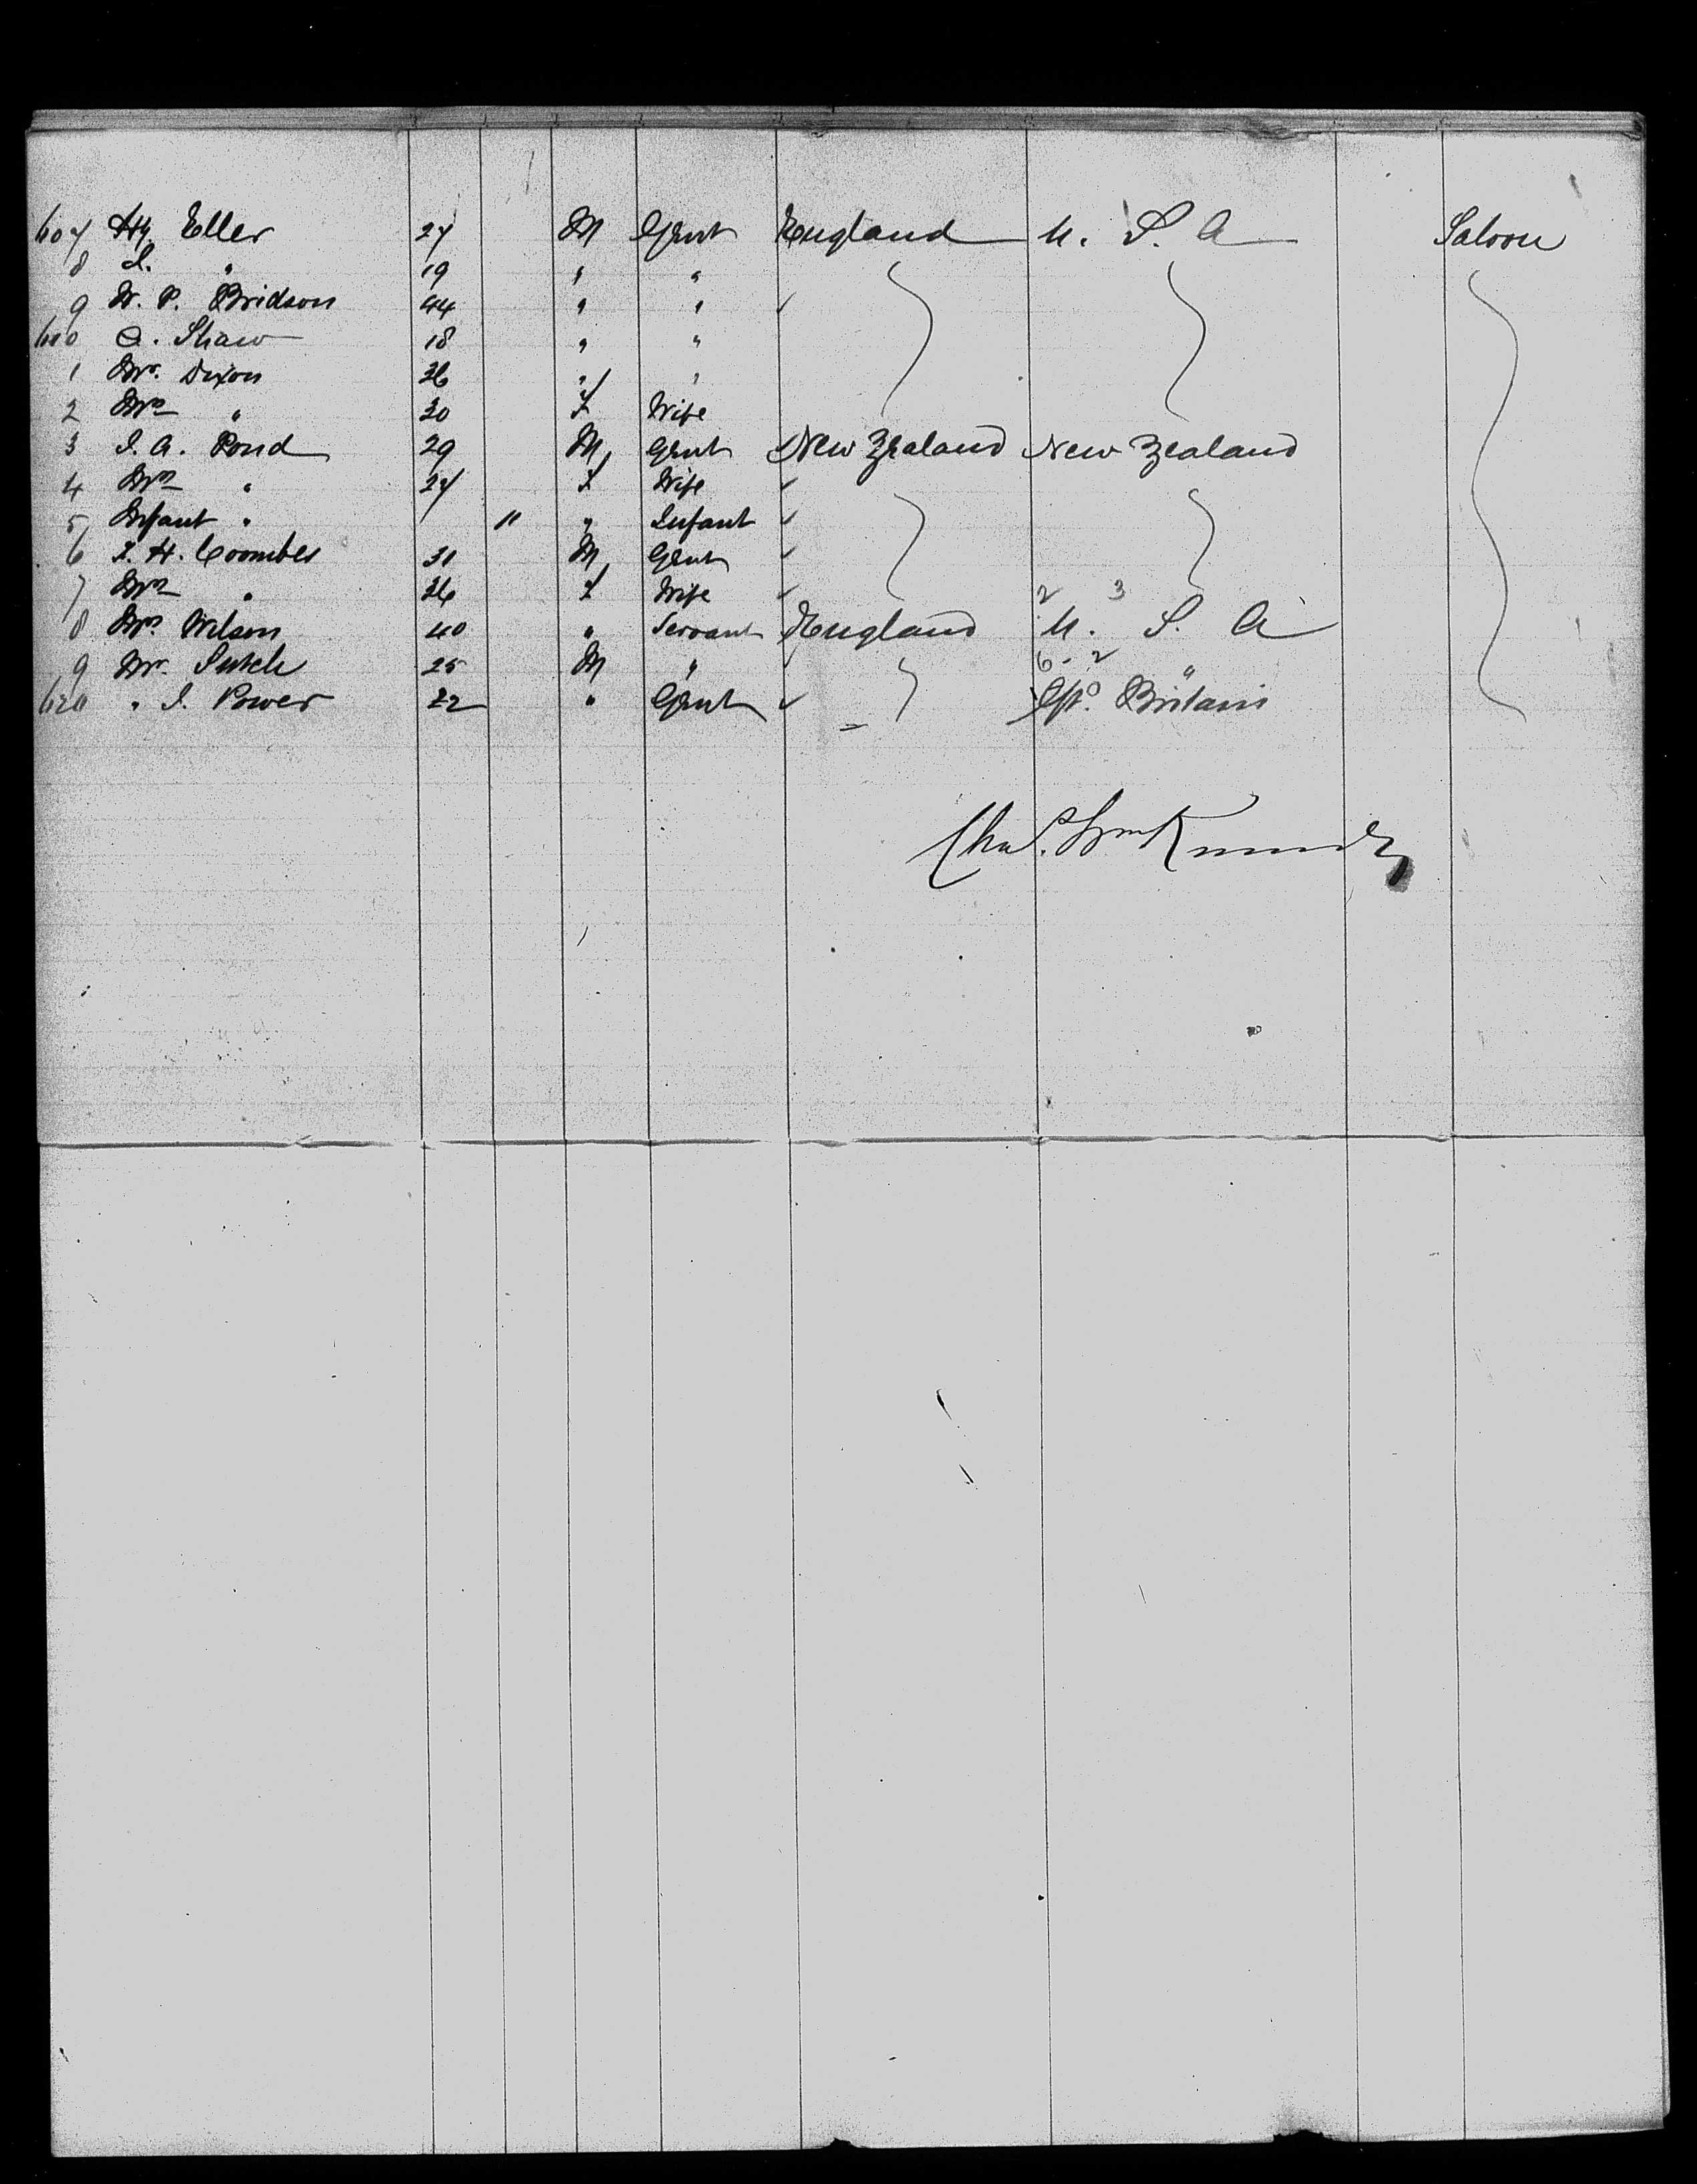 607 Hy Eller 27 M Gent England U. S. A Saloon
8 J. " 19 " "
9 W. P. Bridson 44 " "
610 A. Shaw 18 " "
1 Mr. Dixon 36 " "
2 Mrs " 30 F Wife
3 J. A. Pond 29 M Gent New Zealand New Zealand
4 Mrs " 27 F Wife
5 Infant " 11 " Infant
6 F. H. Coombes 31 M Gent
7 Mrs " 26 F Wife
2 3
8 Mrs. Wilson 40 " Servant England U. S. A
6 - 2
9 Mr. Sutch 25 M " "
620 " J. Power 22 " Gent Gt. Britain
Chas. Wm Kennedy